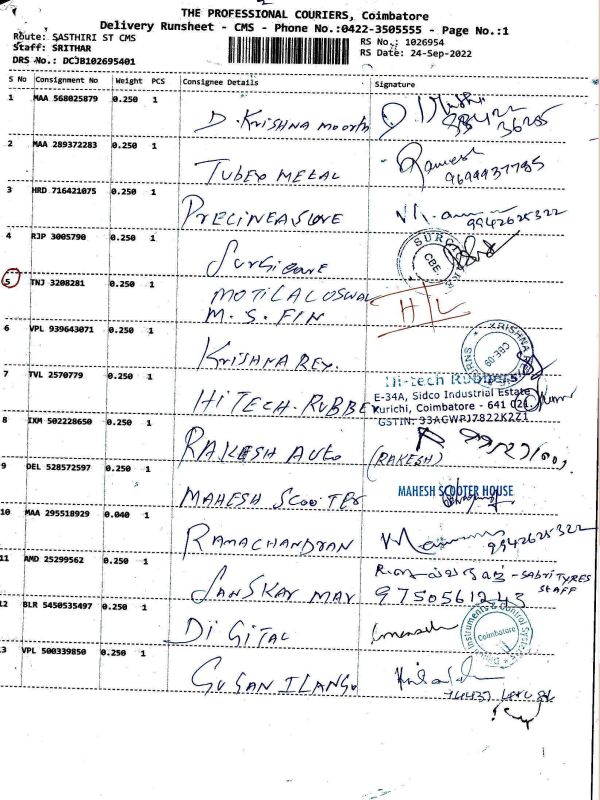 THE PROFESSIONAL COURIERS, Coimbatore
Delivery Runsheet - CMS - Phone No.:0422-3505555 - Page No.:1
Route: SASTHIRI ST CMS
Staff: SRITHAR
DRS No.: DCJB102695401
RS No.: 1026954
RS Date: 24-Sep-2022
S No Consignment No Weight PCS Consignee Details Signature
1 MAA 568025879 0.250 1
D. Krishna moorth
2 MAA 289372283 0.250 1
Tubex METAL Ramesh
3 HRD 716421075 0.250 1
PRECLINEASLOVE
9942625322
4 RJP 3005790 0.250 1
Surgicare SURGI
CBE.
5 TNJ 3208281 0.250 1
MOTILALOSWAL H L
M.S. FIN
6 VPL 939643071 0.250 1
KRISHNA REX. KRISHNA
CBE-09
7 TVL 2570779 0.250 1
HITECH. RUBBER Hi-tech Rubbers
E-34A, Sidco Industrial Estate
Kurichi, Coimbatore - 641 021.
GSTIN: 33AGWPJ7822K2Z1
8 IXM 502228650 0.250 1
RAKESH AUTO (RAKESH)
9 DEL 528572597 0.250 1
MAHESH SCOOTER MAHESH SCOOTER HOUSE
10 MAA 295518929 0.040 1
RAMACHANDRAN 9942625322
11 AMD 25299562 0.250 1
SANSKAR MAR - Sabri TYRES
STAFF
9750561243
12 BLR 5450535497 0.250 1
DIGITAL Instruments & Control Systems
Coimbatore
13 VPL 500339850 0.250 1
GUSAN ILANGO